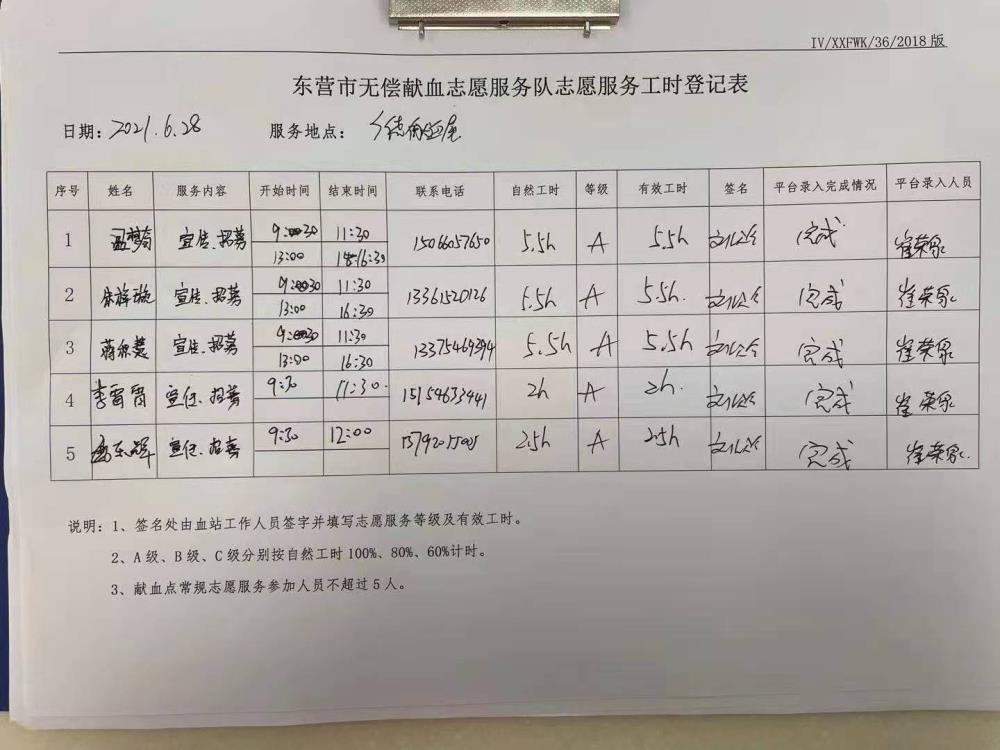 IV/XXFWK/36/2018版
东营市无偿献血志愿服务队志愿服务工时登记表
日期：2021.6.28 服务地点：
序号 姓名 服务内容 开始时间 结束时间 联系电话 自然工时 等级 有效工时 签名 平台录入完成情况 平台录入人员
1 宣传、招募 9:30 11:30 15066057650 5.5h A 5.5h 完成 崔荣泉
13:00 16:30
2 宣传、招募 9:30 11:30 13361520126 5.5h A 5.5h. 完成 崔荣泉
13:00 16:30
3 宣传、招募 9:30 11:30 5.5h A 5.5h 完成 崔荣泉
13:00 16:30
4 李雷雷 宣传、招募 9:30 11:30 15154633441 2h A 2h. 完成 崔荣泉
5 宣传、招募 9:30 12:00 2.5h A 2.5h 完成 崔荣泉
说明：1、签名处由血站工作人员签字并填写志愿服务等级及有效工时。
2、A级、B级、C级分别按自然工时100%、80%、60%计时。
3、献血点常规志愿服务参加人员不超过5人。